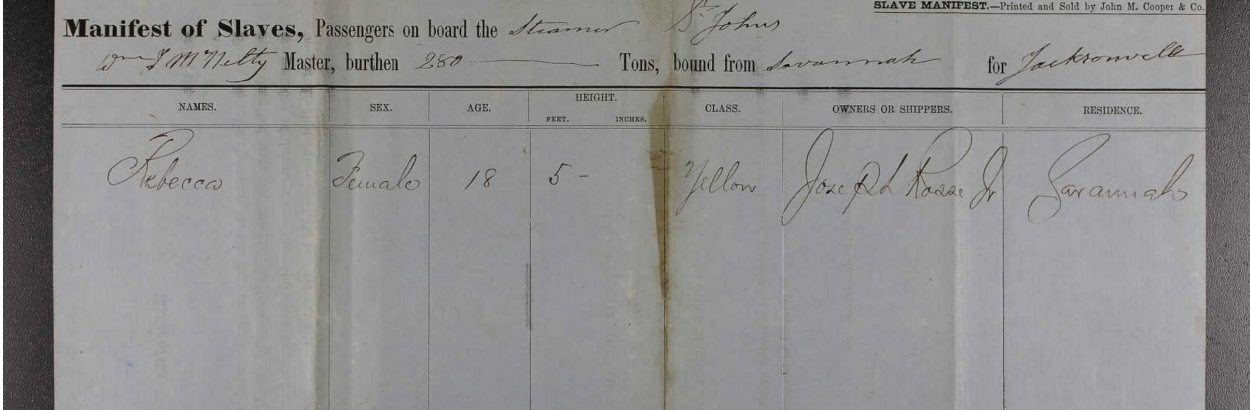 SLAVE MANIFEST.—Printed and Sold by John M. Cooper & Co.
Manifest of Slaves, Passengers on board the Steamer St Johns
Wm T McNelty Master, burthen 280 Tons, bound from Savannah for Jacksonville
NAMES. SEX. AGE. HEIGHT. CLASS. OWNERS OR SHIPPERS. RESIDENCE.
FEET. INCHES.
Rebecca Female 18 5 - Yellow Joseph Jr Savannah